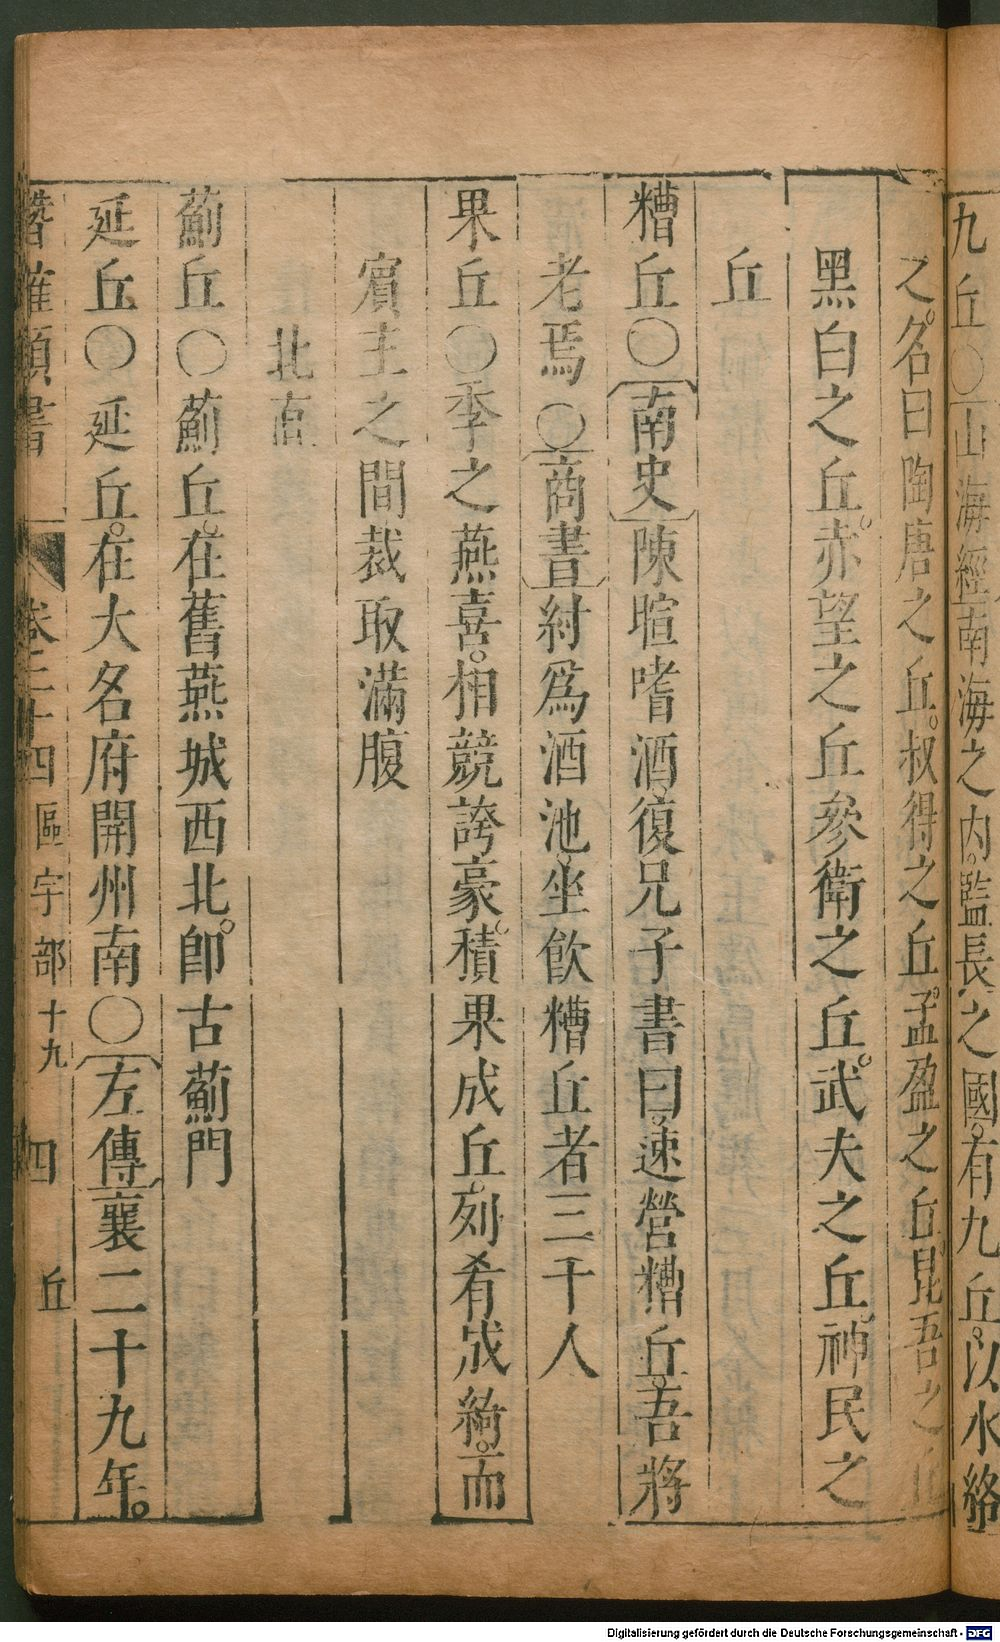 九丘○山海經南海之內。監長之國。有九丘。以水絡
之。名曰陶唐之丘。叔得之丘。孟盈之丘。昆吾之丘
黑白之丘。赤望之丘參衛之丘。武夫之丘。神民之
丘
糟丘○南史陳暄嗜酒。復兄子書曰。速營糟丘。吾將
老焉○商書紂爲酒池。坐飲糟丘者三千人
果丘○季之燕喜。相競誇豪。積果成丘。列肴成綺。而
賓主之間裁取滿腹
北直
薊丘○薊丘。在舊燕城西北。卽古薊門
延丘○延丘。在大名府開州南○左傳襄二十九年。
潛確類書 卷三十四 區宇部十九 四 丘
Digitalisierung gefördert durch die Deutsche Forschungsgemeinschaft - DFG